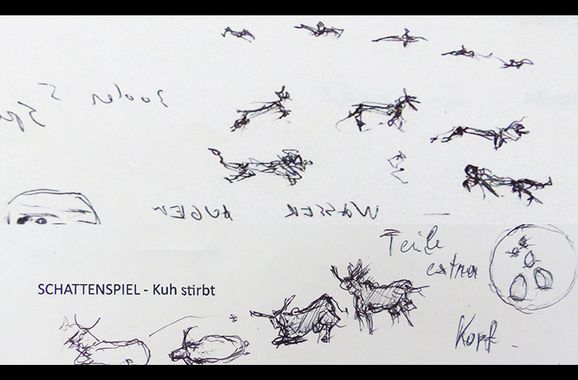 3 oder 5
WASSER AUGEN
Teile
extra
SCHATTENSPIEL - Kuh stirbt
Kopf